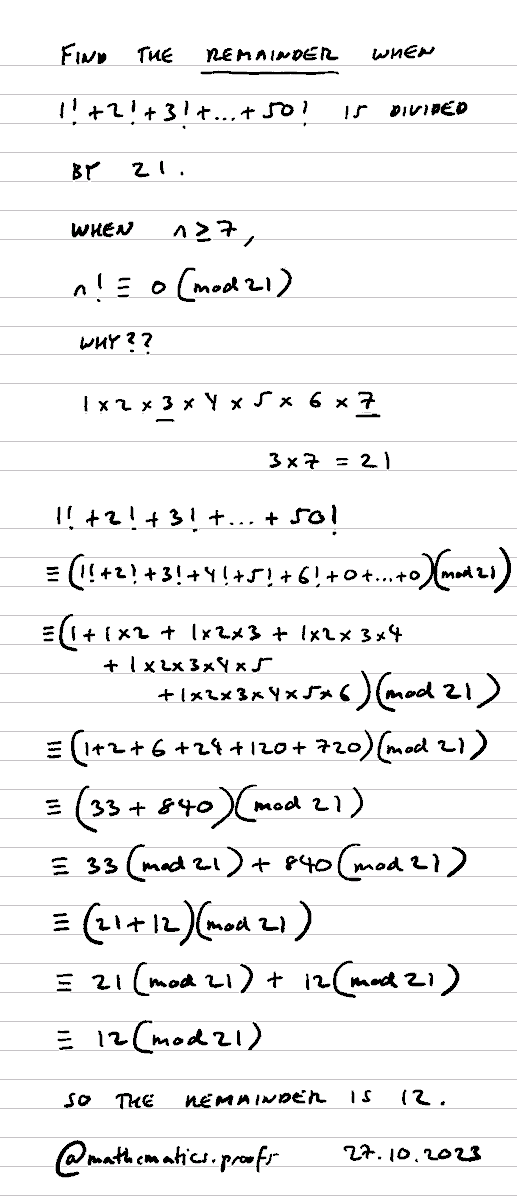 FIND THE REMAINDER WHEN
1!+2!+3!+...+50! IS DIVIDED
BY 21.
WHEN n≥7,
n! ≡ 0 (mod 21)
WHY??
1×2×3×4×5×6×7
3×7 = 21
1!+2!+3!+...+50!
≡(1!+2!+3!+4!+5!+6!+0+...+0)(mod 21)
≡(1+1×2+1×2×3+1×2×3×4
+1×2×3×4×5
+1×2×3×4×5×6)(mod 21)
≡(1+2+6+24+120+720)(mod 21)
≡(33+840)(mod 21)
≡ 33(mod 21)+840(mod 21)
≡(21+12)(mod 21)
≡ 21(mod 21)+12(mod 21)
≡ 12(mod 21)
SO THE REMAINDER IS 12.
@mathematics.proofs 27.10.2023